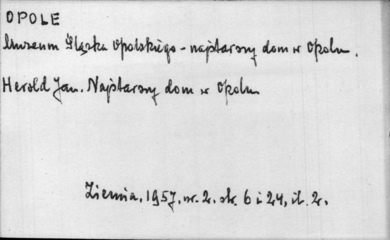 OPOLE
Muzeum Śląska Opolskiego - najstarszy dom w Opolu.
Herold Jan. Najstarszy dom w Opolu
Ziemia, 1957, nr. 2. str. 6 i 24, il. 2.